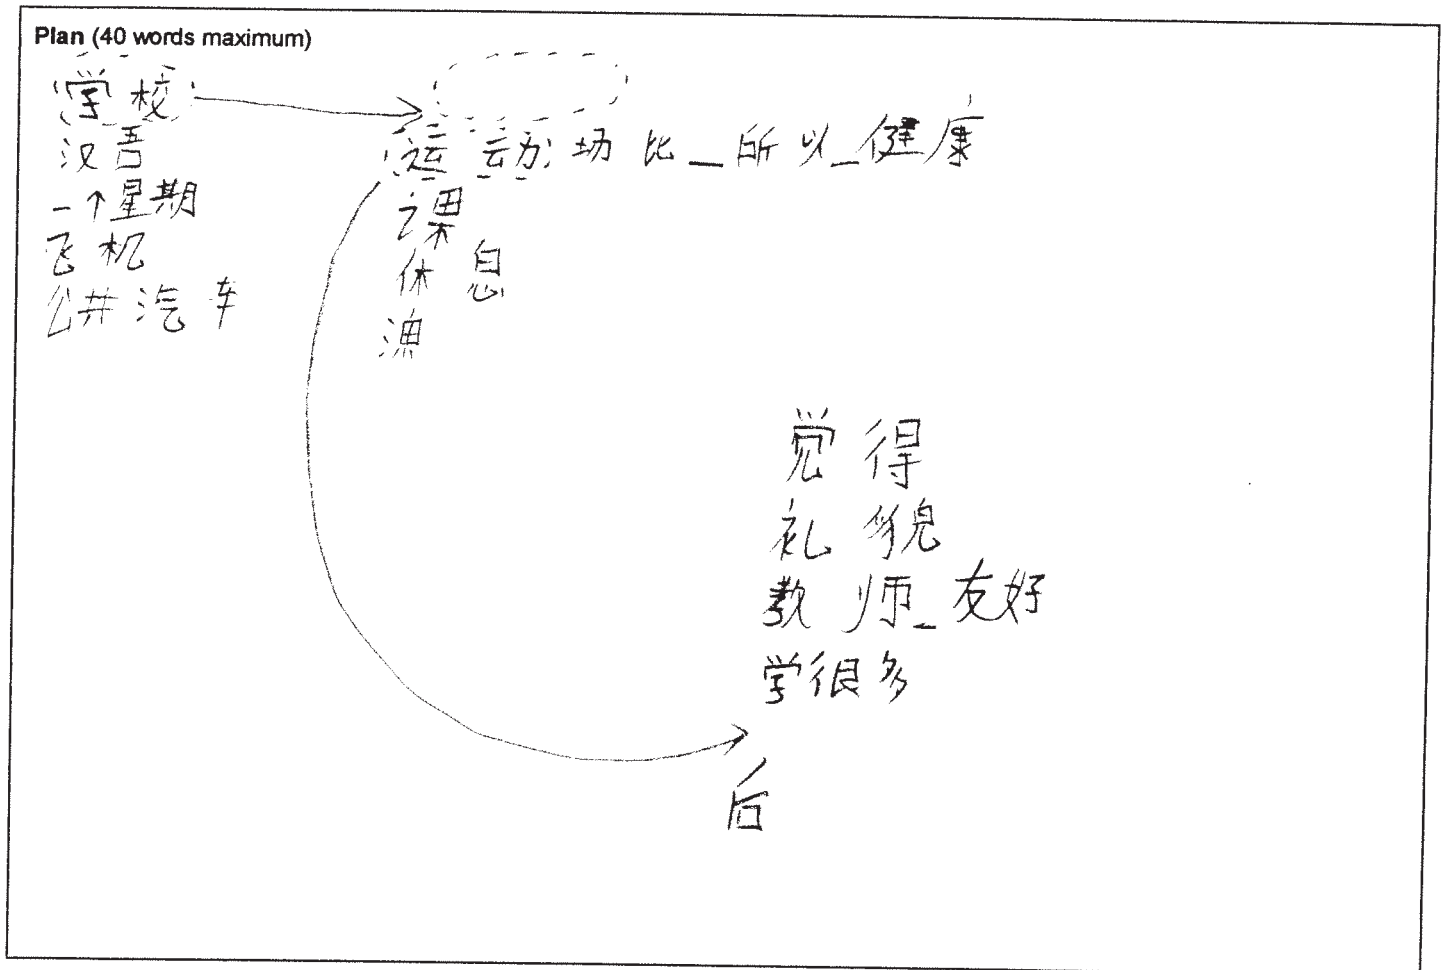 Plan (40 words maximum)
学校
汉吾
一个星期
飞机
公井汽车
运动场比_所以_健康
课
休息
渔
觉得
礼貌
教师_友好
学很多
后